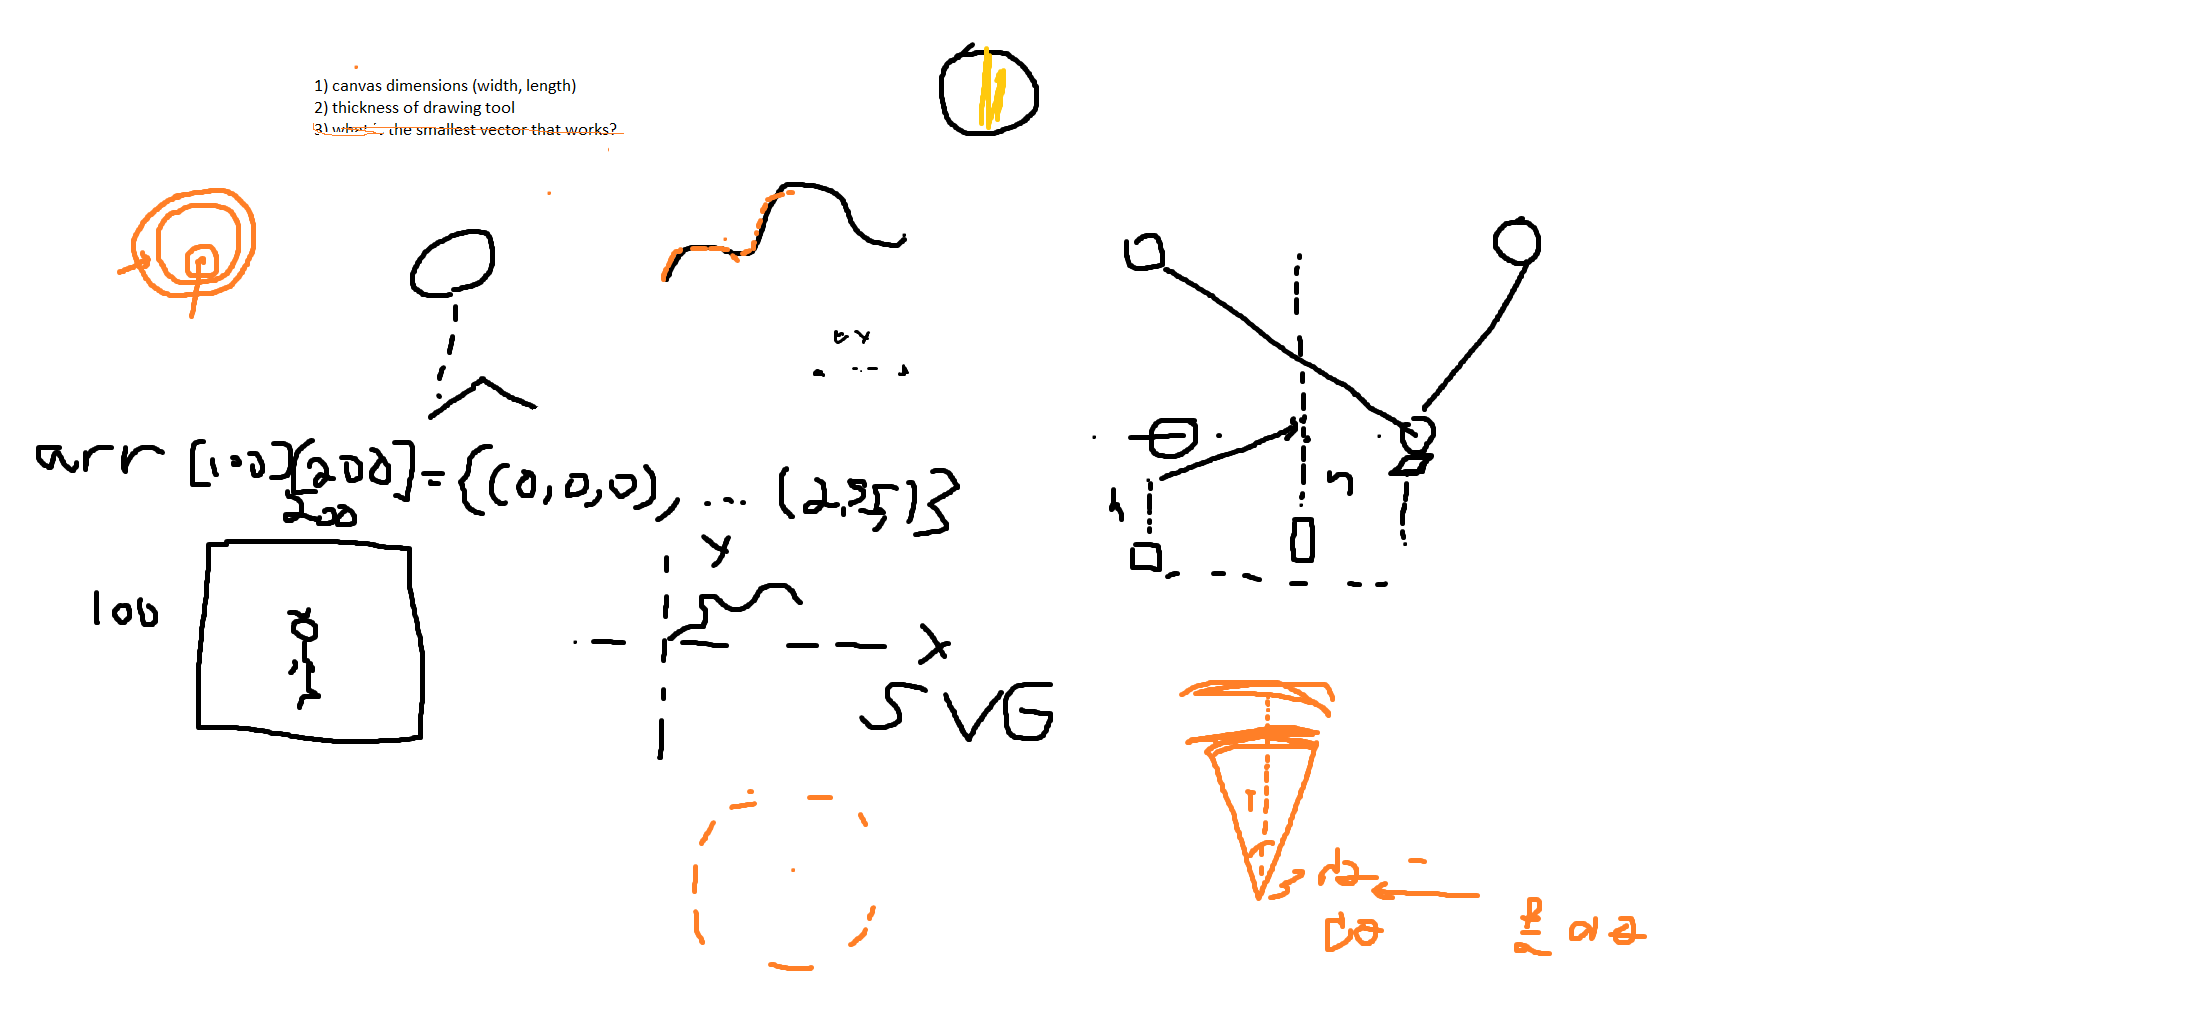 1) canvas dimensions (width, length)
2) thickness of drawing tool
3) what is the smallest vector that works?
arr [100][200] = {(0,0,0), ... (2,35,)}
200
100
y
x
SVG
h
n
r
dθ